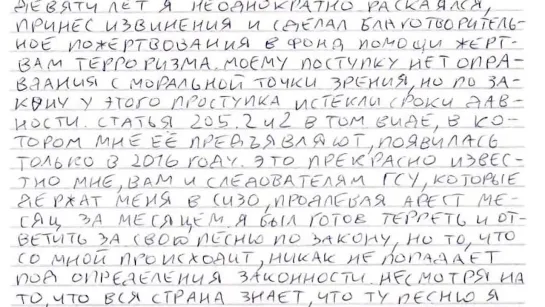 ДЕВЯТИ ЛЕТ Я НЕОДНОКРАТНО РАСКАЯЛСЯ,
ПРИНЕС ИЗВИНЕНИЯ И СДЕЛАЛ БЛАГОТВОРИТЕЛЬ-
НОЕ ПОЖЕРТВОВАНИЯ В ФОНД ПОМОЩИ ЖЕРТ-
ВАМ ТЕРРОРИЗМА. МОЕМУ ПОСТУПКУ НЕТ ОПРА-
ВДАНИЯ С МОРАЛЬНОЙ ТОЧКИ ЗРЕНИЯ, НО ПО ЗА-
КОНУ У ЭТОГО ПРОСТУПКА ИСТЕКЛИ СРОКИ ДАВ-
НОСТИ. СТАТЬЯ 205.2 Ч2 В ТОМ ВИДЕ, В КО-
ТОРОМ МНЕ ЕЁ ПРЕДЪЯВЛЯЮТ, ПОЯВИЛАСЬ
ТОЛЬКО В 2016 ГОДУ. ЭТО ПРЕКРАСНО ИЗВЕС-
ТНО МНЕ, ВАМ И СЛЕДОВАТЕЛЯМ ГСУ, КОТОРЫЕ
ДЕРЖАТ МЕНЯ В СИЗО, ПРОДЛЕВАЯ АРЕСТ МЕ-
СЯЦ ЗА МЕСЯЦЕМ. Я БЫЛ ГОТОВ ТЕРПЕТЬ И ОТ-
ВЕТИТЬ ЗА СВОЮ ПЕСНЮ ПО ЗАКОНУ, НО ТО, ЧТО
СО МНОЙ ПРОИСХОДИТ, НИКАК НЕ ПОПАДАЕТ
ПОД ОПРЕДЕЛЕНИЯ ЗАКОННОСТИ. НЕСМОТРЯ НА
ТО, ЧТО ВСЯ СТРАНА ЗНАЕТ, ЧТО ТУ ПЕСНЮ Я